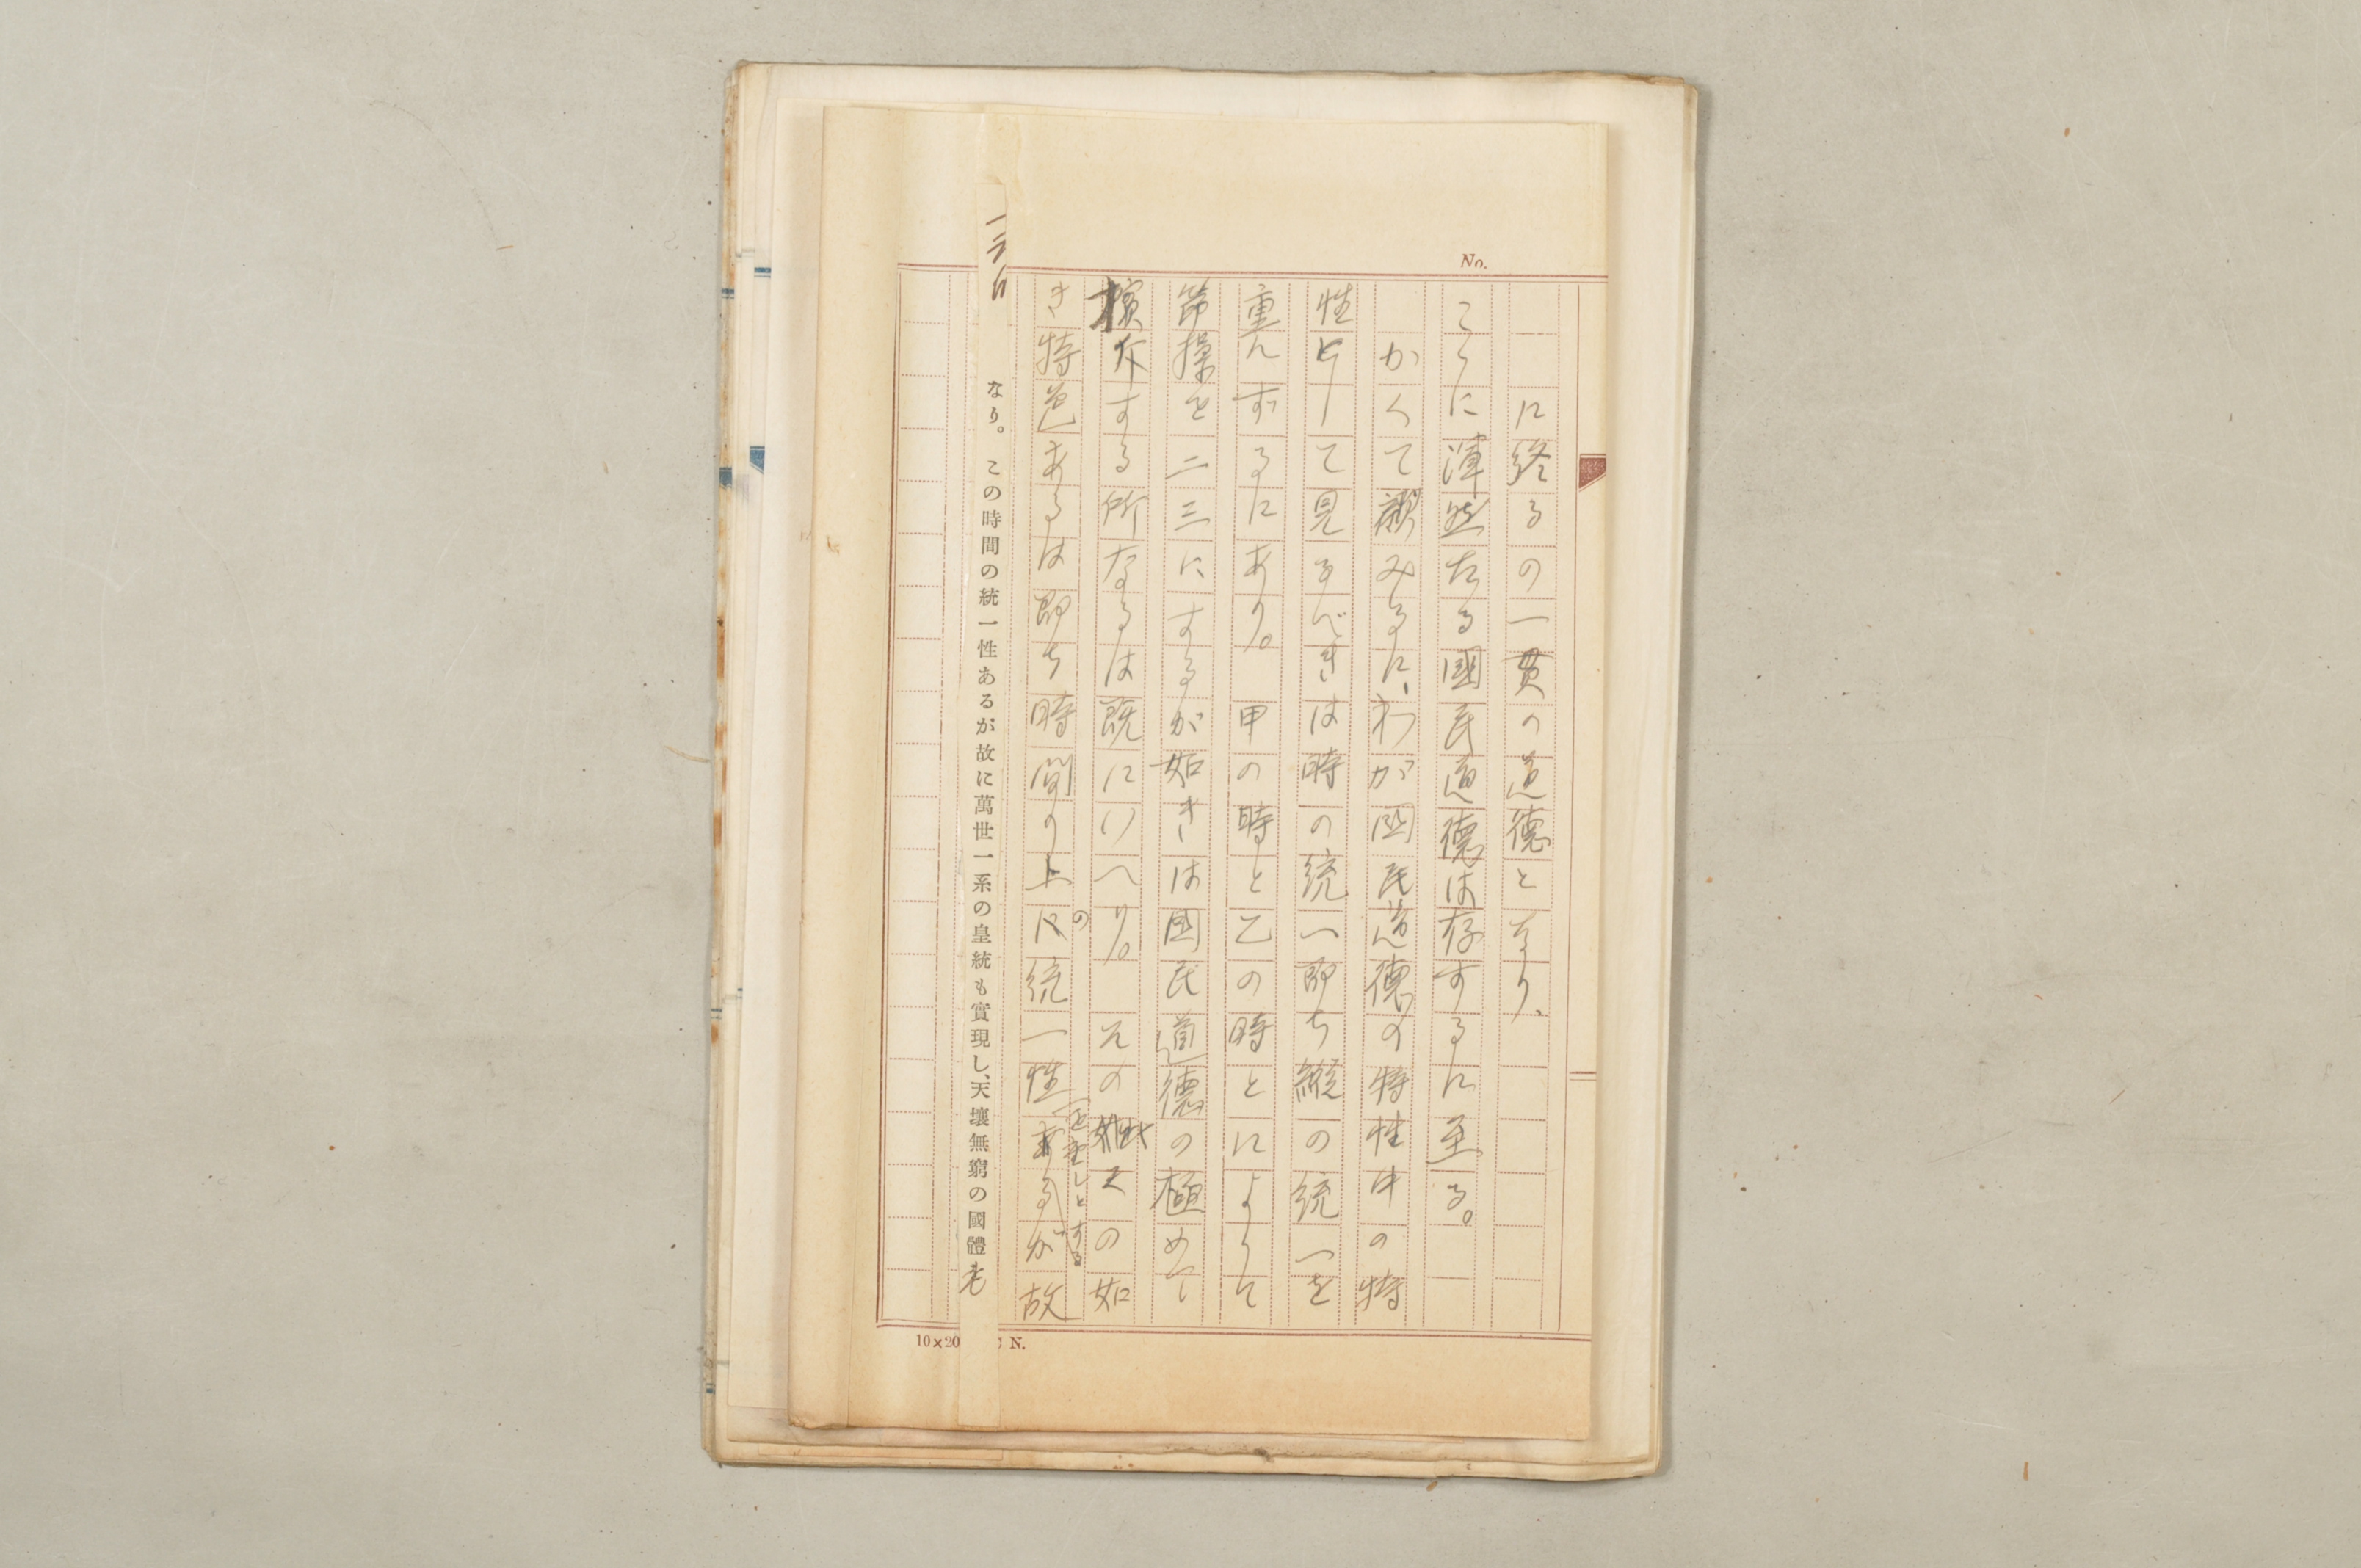 No.
に終るの一貫の道徳となり、
こゝに渾然たる國民道徳は存するに至る。
かくて顧みるに、わが國民道徳の特性中の特
性として見るべきは時の統一即ち縱の統一を
重んずるにあり。甲の時と乙の時とによりて
節操を二三にするが如きは國民道徳の極めて
擯斥する所なるは既にいへり。その の如
き特色あるは即ち時間の上の統一性を重しとするが故
なり。この時間の統一性あるが故に萬世一系の皇統も實現し、天壤無窮の國體
10×20 N.